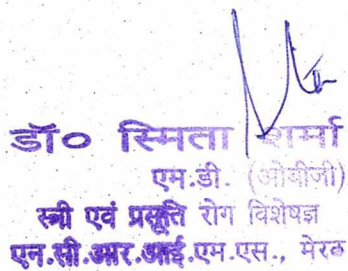 डॉ० स्मिता शर्मा
एम.डी. (ओबीजी)
स्त्री एवं प्रसूति रोग विशेषज्ञ
एन.सी.आर.आई.एम.एस., मेरठ